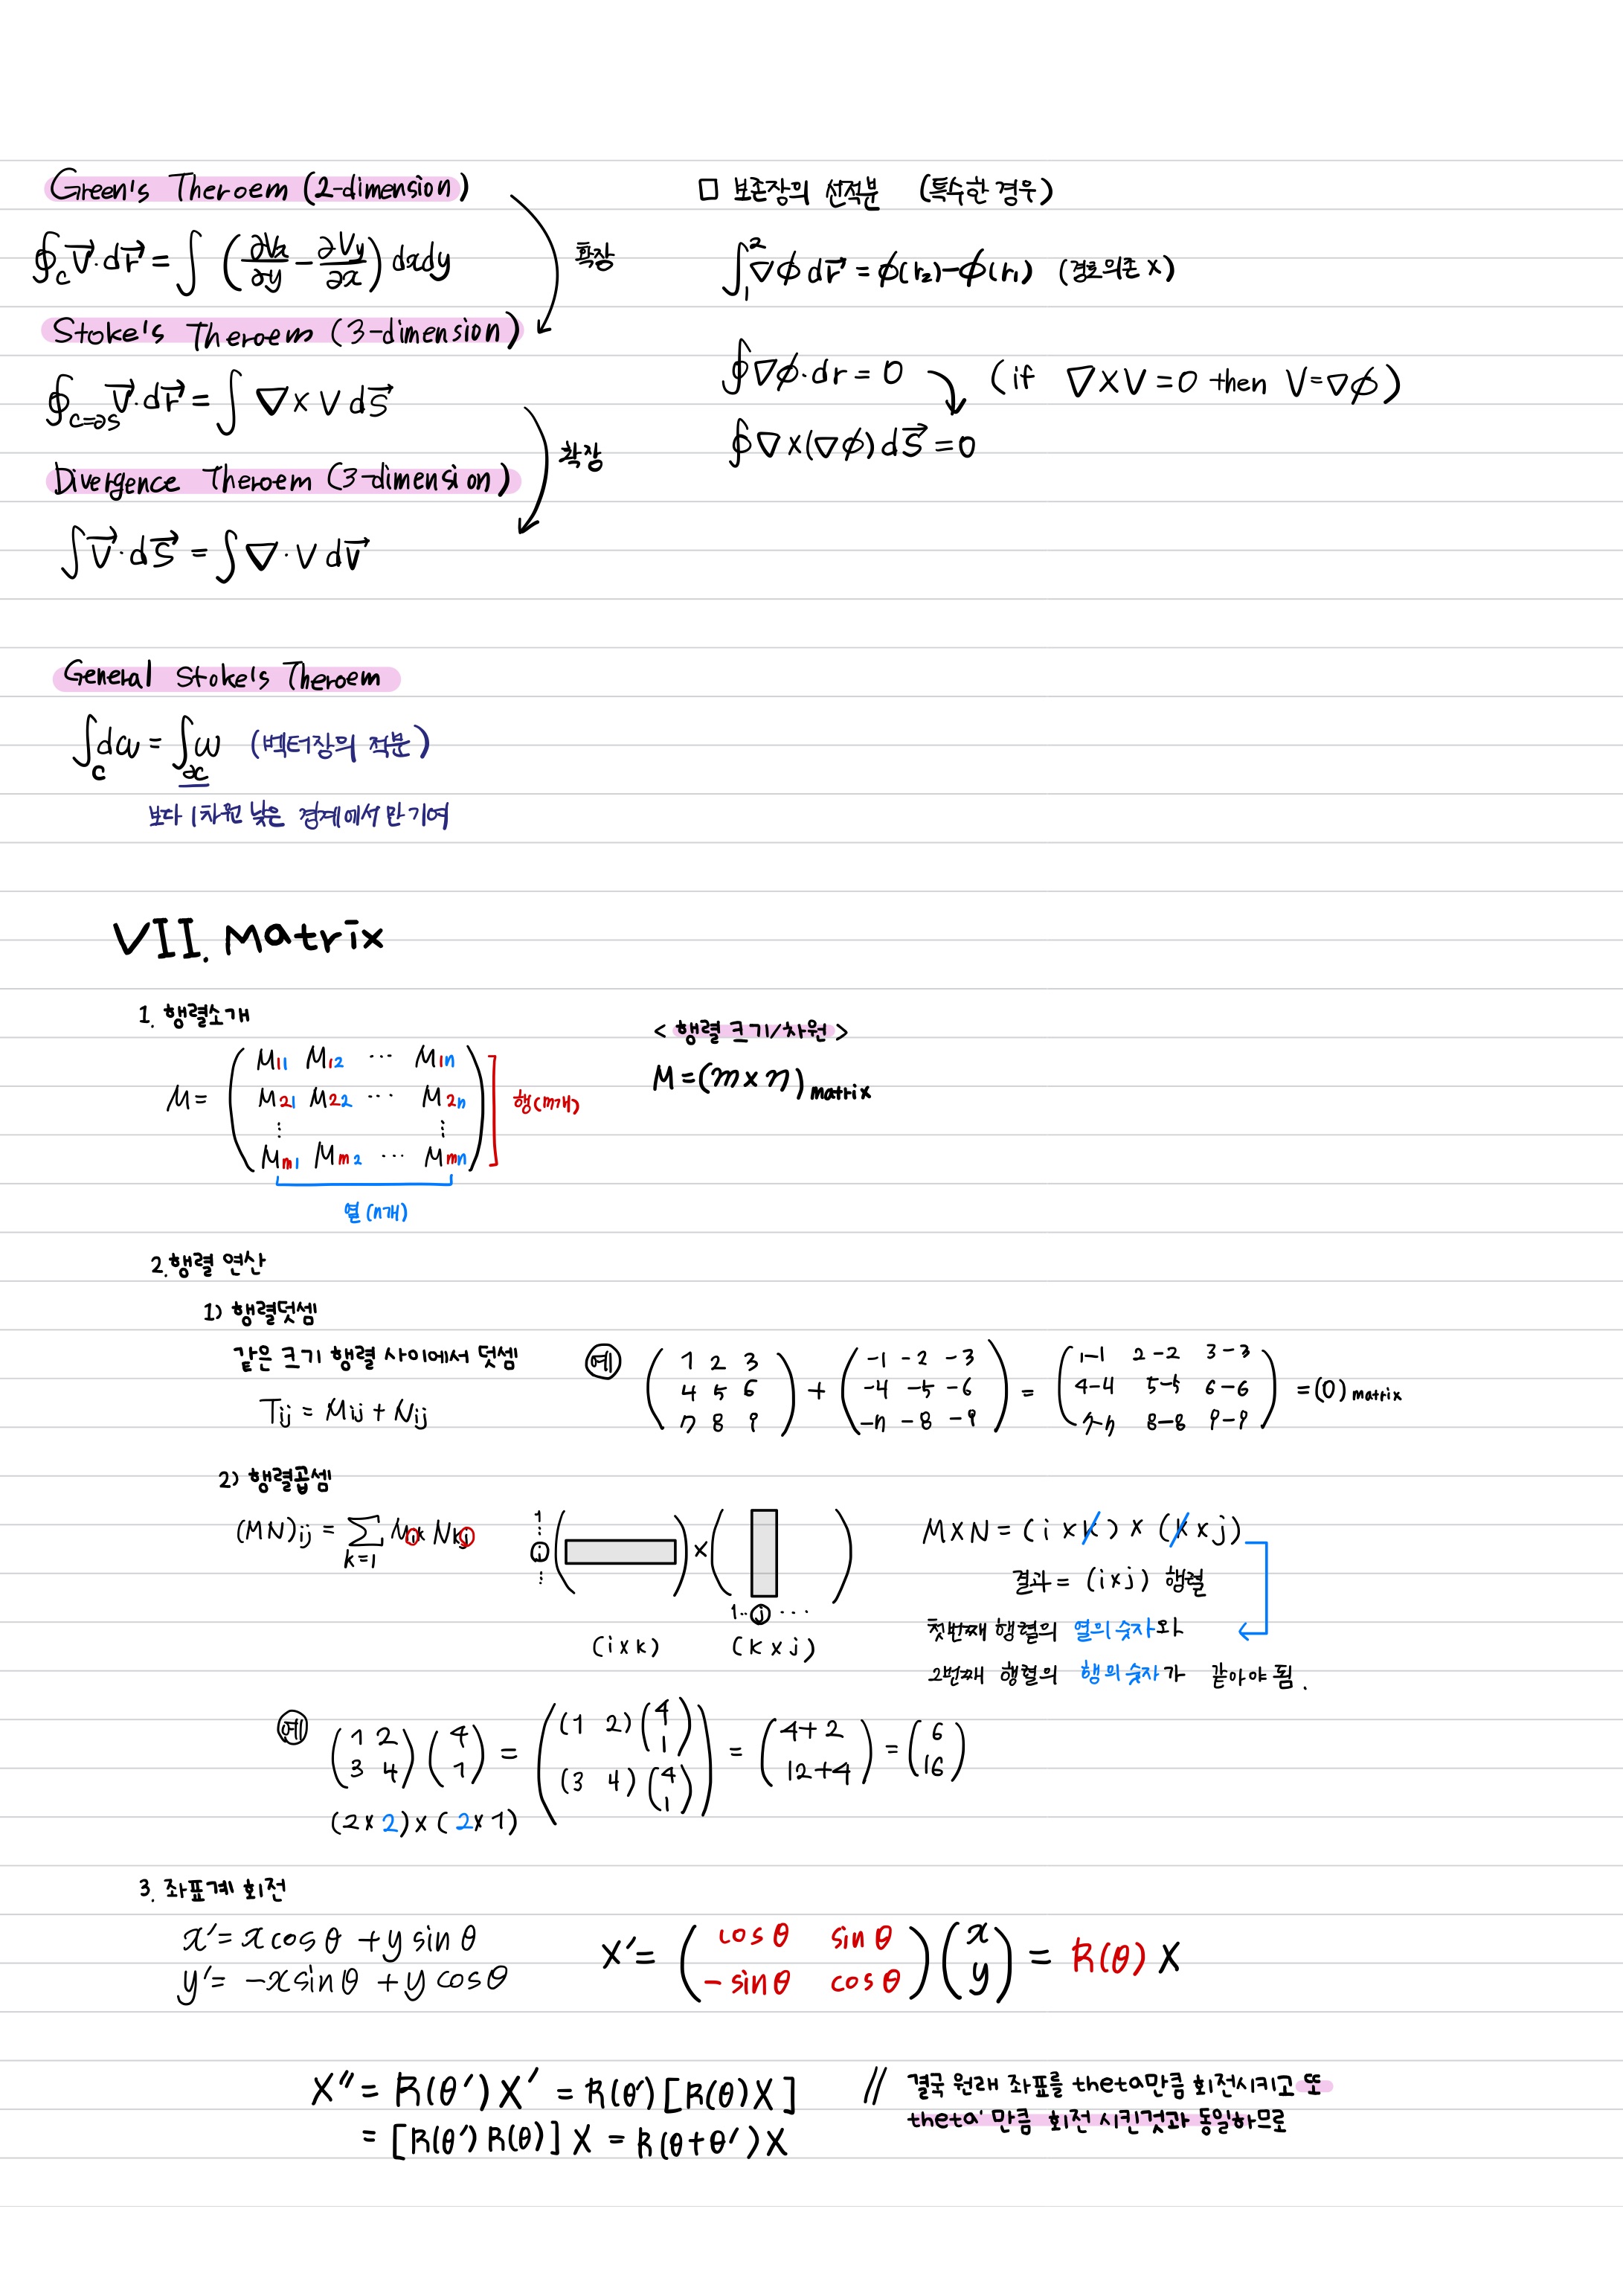 Green's Theroem (2-dimension)
∮_C V⃗·dr⃗ = ∫ (∂Vx/∂y − ∂Vy/∂x) dxdy
확장
Stoke's Theroem (3-dimension)
∮_{C=∂S} V⃗·dr⃗ = ∫ ∇×V dS⃗
확장
Divergence Theroem (3-dimension)
∫V⃗·dS⃗ = ∫∇·V dV⃗
□ 보존장의 선적분 (특수한 경우)
∫₁² ∇φ dr⃗ = φ(r₂)−φ(r₁) (경로의존 x)
∮∇φ·dr = 0 (if ∇×V=0 then V=∇φ)
∮∇×(∇φ)dS⃗ = 0
General Stoke's Theroem
∫_C dω = ∫_{∂C} ω (벡터장의 적분)
보다 1차원 낮은 경계에서만 기여
VII. Matrix
1. 행렬소개
M = ( M11 M12 ⋯ M1n
M21 M22 ⋯ M2n
⋮ ⋮
Mm1 Mm2 ⋯ Mmn )
행(m개)
열(n개)
<행렬 크기/차원>
M = (m×n) matrix
2. 행렬 연산
1) 행렬덧셈
같은 크기 행렬 사이에서 덧셈
Tij = Mij + Nij
예 (1 2 3 / 4 5 6 / 7 8 9) + (-1 -2 -3 / -4 -5 -6 / -7 -8 -9) = (1-1 2-2 3-3 / 4-4 5-5 6-6 / 7-7 8-8 9-9) = (0) matrix
2) 행렬곱셈
(MN)ij = Σ_{k=1} Mik Nkj
1 ⋮ i ⋮ ( ) × ( )
1‥ j ⋯
(i×k) (k×j)
M×N = (i×k)×(k×j)
결과 = (i×j) 행렬
첫번째 행렬의 열의 숫자와
2번째 행렬의 행의 숫자가 같아야 됨.
예 (1 2 / 3 4)(4 / 1) = ((1 2)(4 / 1) / (3 4)(4 / 1)) = (4+2 / 12+4) = (6 / 16)
(2×2)×(2×1)
3. 좌표계 회전
x′= xcosθ + y sinθ
y′= −xsinθ + y cosθ
X′= (cosθ sinθ / −sinθ cosθ)(x / y) = R(θ) X
X″ = R(θ′)X′ = R(θ′)[R(θ)X]
= [R(θ′)R(θ)]X = R(θ+θ′)X
// 결국 원래 좌표를 theta만큼 회전시키고 또
theta' 만큼 회전 시킨것과 동일하므로